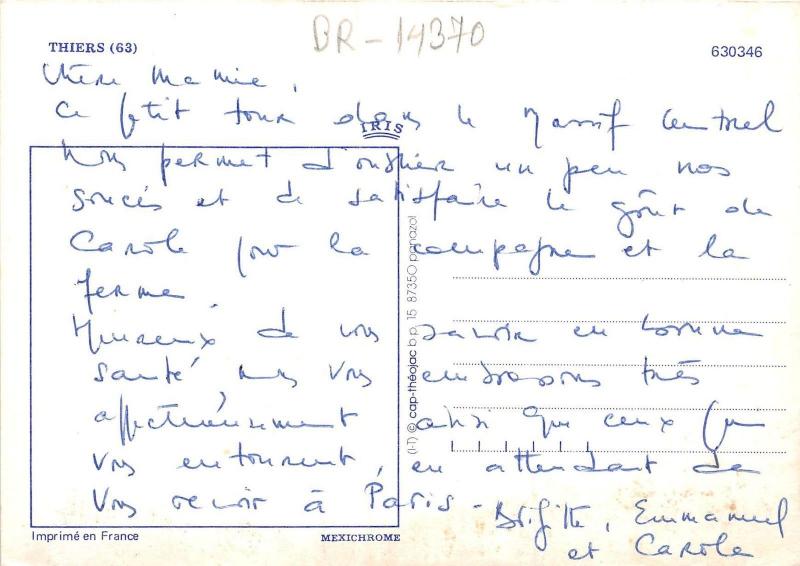 BR-14370
THIERS (63)
630346
Chère Mamie,
Ce petit tour dans le Massif Central
IRIS
nous permet d'oublier un peu nos
soucis et de satisfaire le goût de
Carole pour la campagne et la
ferme.
Heureux de vous savoir en bonne
santé, nous vous embrassons très
affectueusement ainsi que ceux qui
vous entourent, en attendant de
vous revoir à Paris -
Brigitte, Emmanuel
et Carole
(I-T) © cap-théojac b.p. 15 87350 panazol
Imprimé en France
MEXICHROME